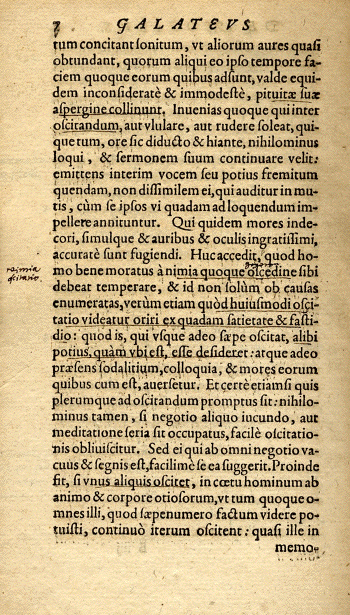 7 GALATEVS
tum concitant sonitum, vt aliorum aures quasi
obtundant, quorum aliqui eo ipso tempore fa-
ciem quoque eorum quibus adsunt, valde equi-
dem inconsideratè & immodestè, pituitæ suæ
aspergine collinunt. Inuenias quoque qui inter
oscitandum, aut vlulare, aut rudere soleat, qui-
que tum, ore sic diducto & hiante, nihilominus
loqui, & sermonem suum continuare velit:
emittens interim vocem seu potius fremitum
quendam, non dissimilem ei, qui auditur in mu-
tis, cùm se ipsos vi quadam ad loquendum im-
pellere annituntur. Qui quidem mores inde-
cori, simulque & auribus & oculis ingratissimi,
accuratè sunt fugiendi. Huc accedit, quod ho-
mo bene moratus à nimia quoque oscedine sibi
nimia
debeat temperare, & id non solùm ob causas
enumeratas, verùm etiam quòd huiusmodi osci-
tatio videatur oriri ex quadam satietate & fasti-
dio: quod is, qui vsque adeo sæpe oscitat, alibi
potius, quàm vbi est, esse desideret: atque adeo
præsens sodalitium, colloquia, & mores eorum
quibus cum est, auersetur. Et certè etiamsi quis
plerumque ad oscitandum promptus sit: nihilo-
minus tamen, si negotio aliquo iucundo, aut
meditatione seria sit occupatus, facilè oscitatio-
nis obliuiscitur. Sed ei qui ab omni negotio va-
cuus & segnis est, facilimè se ea suggerit. Proinde
fit, si vnus aliquis oscitet, in cœtu hominum ab
animo & corpore otiosorum, vt tum quoque o-
mnes illi, quod sæpenumero factum videre po-
tuisti, continuò iterum oscitent: quasi ille in
memo-